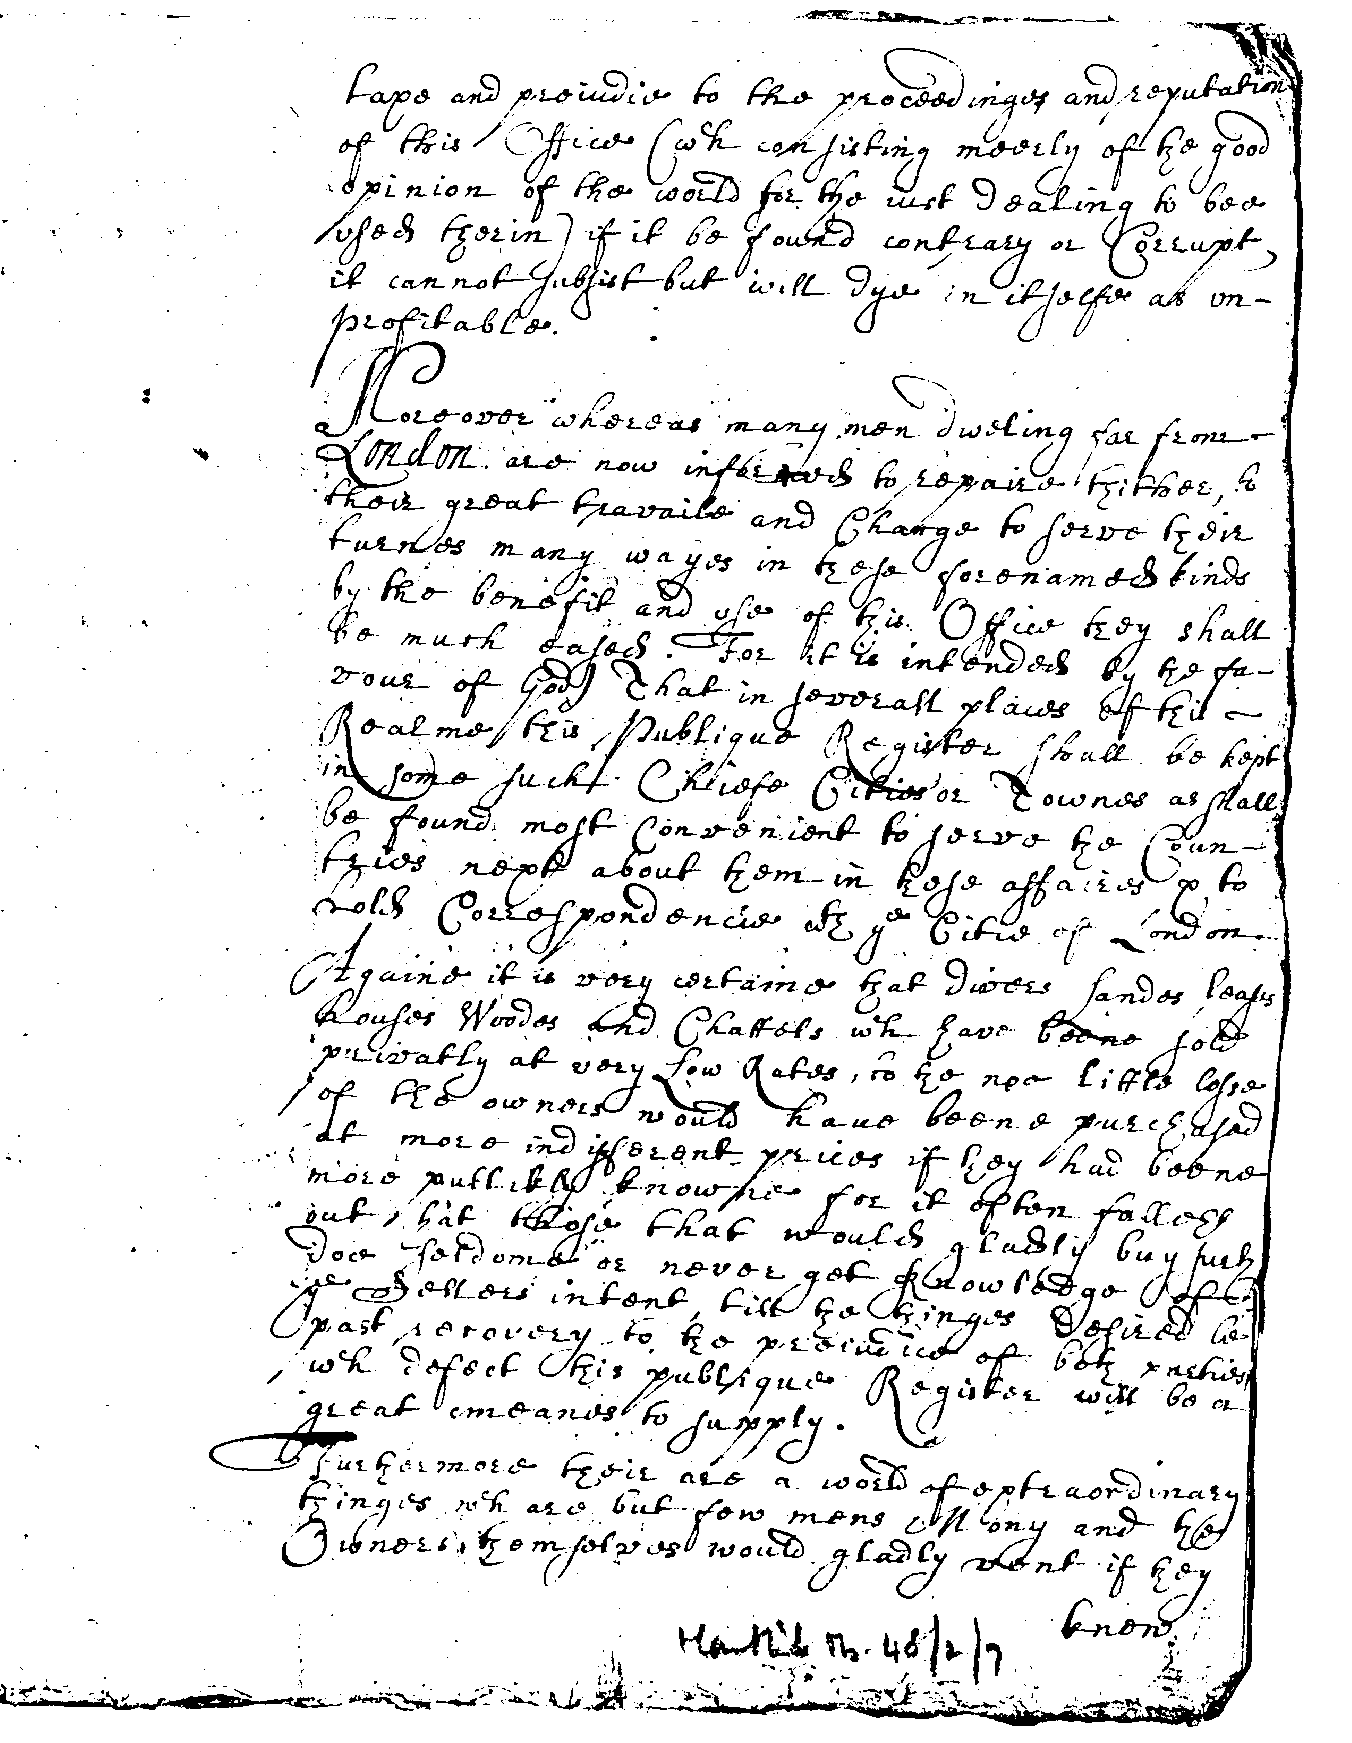 tape and preiudice to the proceedinges and reputation
of this Office (wch consisting meerly of the good
opinion of the world for the iust dealing to bee
vsed therin) if it be found contrary or Corrupt,
it cannot subsist but will dye in itselfe as vn-
profitable.
Moreover whereas many men dweling far from
London are now inforced to repaire thither, to
their great travaile and Charge to serve their
turnes many wayes in these forenamed kinds
by the benefit and vse of this Office they shall
be much eased. For it is intended by the fa-
vour of God) That in severall places of this
Realme this Publique Register shall be kept
in some such Chiefe Cities or Townes as shall
be found most Convenient to serve the Coun-
tries next about them in these affaires & to
hold Correspondencie wth ye Citie of London.
Againe it is very certaine that divers landes leases
houses Woodes and Chattels wch have beene sold
privatly at very Low Rates, to the noe little losse
of the owners would have beene purchased
at more indifferent prices if they had beene
more publikly knowne for it often falleth
out that those that would gladly buy such
doe seldome or never get knowledge of
ye Sellers intent, till the thinges desired be
past recovery to the preiudice of both parties
wch defect this publique Register will be a
great meanes to supply.
Furthermore their are a world of extraordinary
thinges wch are but few mens Mony and the
Owners themselves would gladly vent if they
knew
Hartlib Ms. 48/2/7